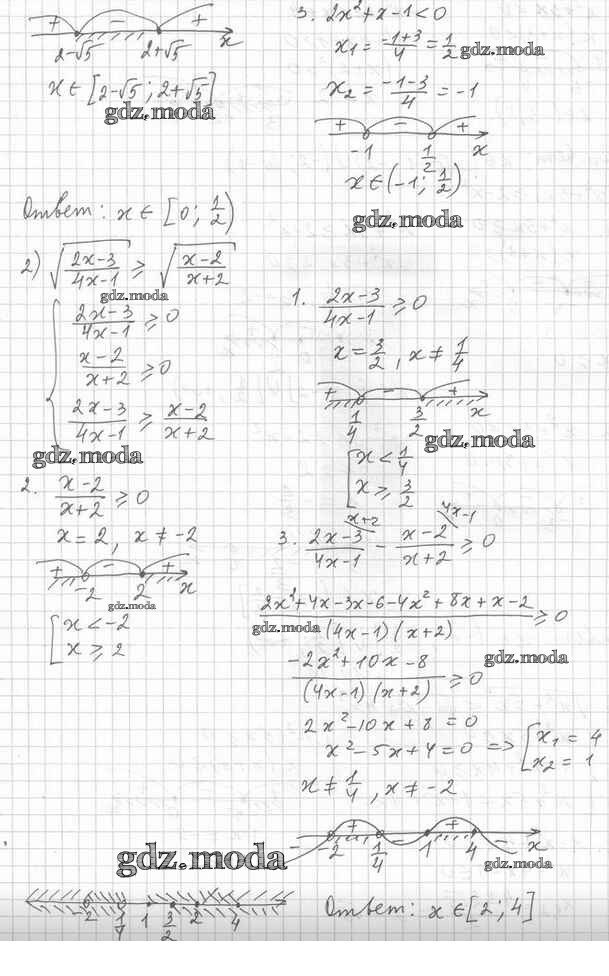 + − +
2-√5 2+√5 x
x ∈ [2-√5; 2+√5]
gdz.moda
3. 2x²+x-1<0
x₁ = (-1+3)/4 = 1/2 gdz.moda
x₂ = (-1-3)/4 = -1
+ − +
-1 1/2 x
x ∈ (-1; 1/2)
gdz.moda
Ответ: x ∈ [0; 1/2)
2) √((2x-3)/(4x-1)) ≥ √((x-2)/(x+2))
gdz.moda
{ (2x-3)/(4x-1) ≥ 0
(x-2)/(x+2) ≥ 0
(2x-3)/(4x-1) ≥ (x-2)/(x+2)
gdz.moda
1. (2x-3)/(4x-1) ≥ 0
x = 3/2, x ≠ 1/4
+ − +
1/4 3/2 x
gdz.moda
[ x < 1/4
x ≥ 3/2
2. (x-2)/(x+2) ≥ 0
x = 2, x ≠ -2
+ − +
-2 2 x
gdz.moda
[ x < -2
x ≥ 2
x+2 4x-1
3. (2x-3)/(4x-1) - (x-2)/(x+2) ≥ 0
(2x²+4x-3x-6-4x²+8x+x-2)/((4x-1)(x+2)) ≥ 0
gdz.moda
(-2x²+10x-8)/((4x-1)(x+2)) ≥ 0
gdz.moda
2x²-10x+8 = 0
x²-5x+4=0 => [ x₁ = 4
x₂ = 1
x ≠ 1/4, x ≠ -2
− + − + −
-2 1/4 1 4 x
gdz.moda
gdz.moda
-2 1/4 1 3/2 2 4
Ответ: x ∈ [2; 4]